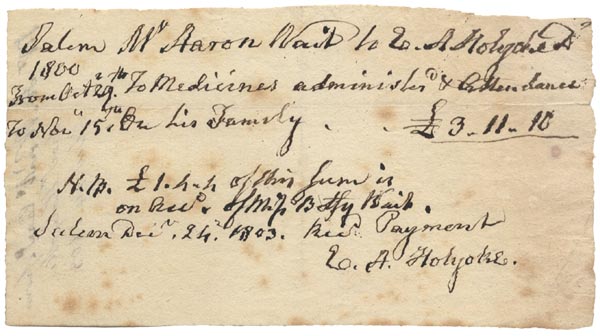 Salem Mr Aaron Wait to E. A Holyoke Dr
1800
From Oct 29th To Medicines administerd & Attendance
To Novr 15th On his Family . . £3.11.10
N.B. £1.4.4 of this Sum is
on Acct of Betsy Wait.
Salem Decr. 24th. 1803. Recd Payment
E. A. Holyoke.